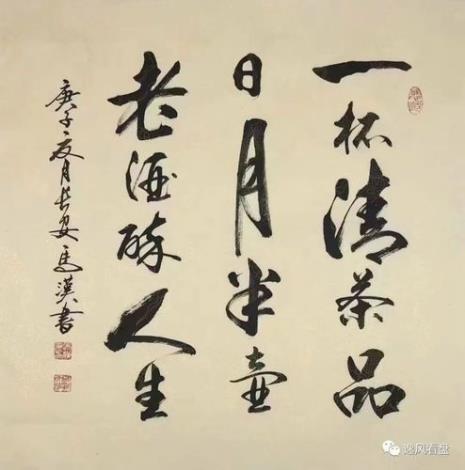 一杯清茶品
日月半壶
老酒醉人生
庚子夏月长安马汉书
逸风看盘